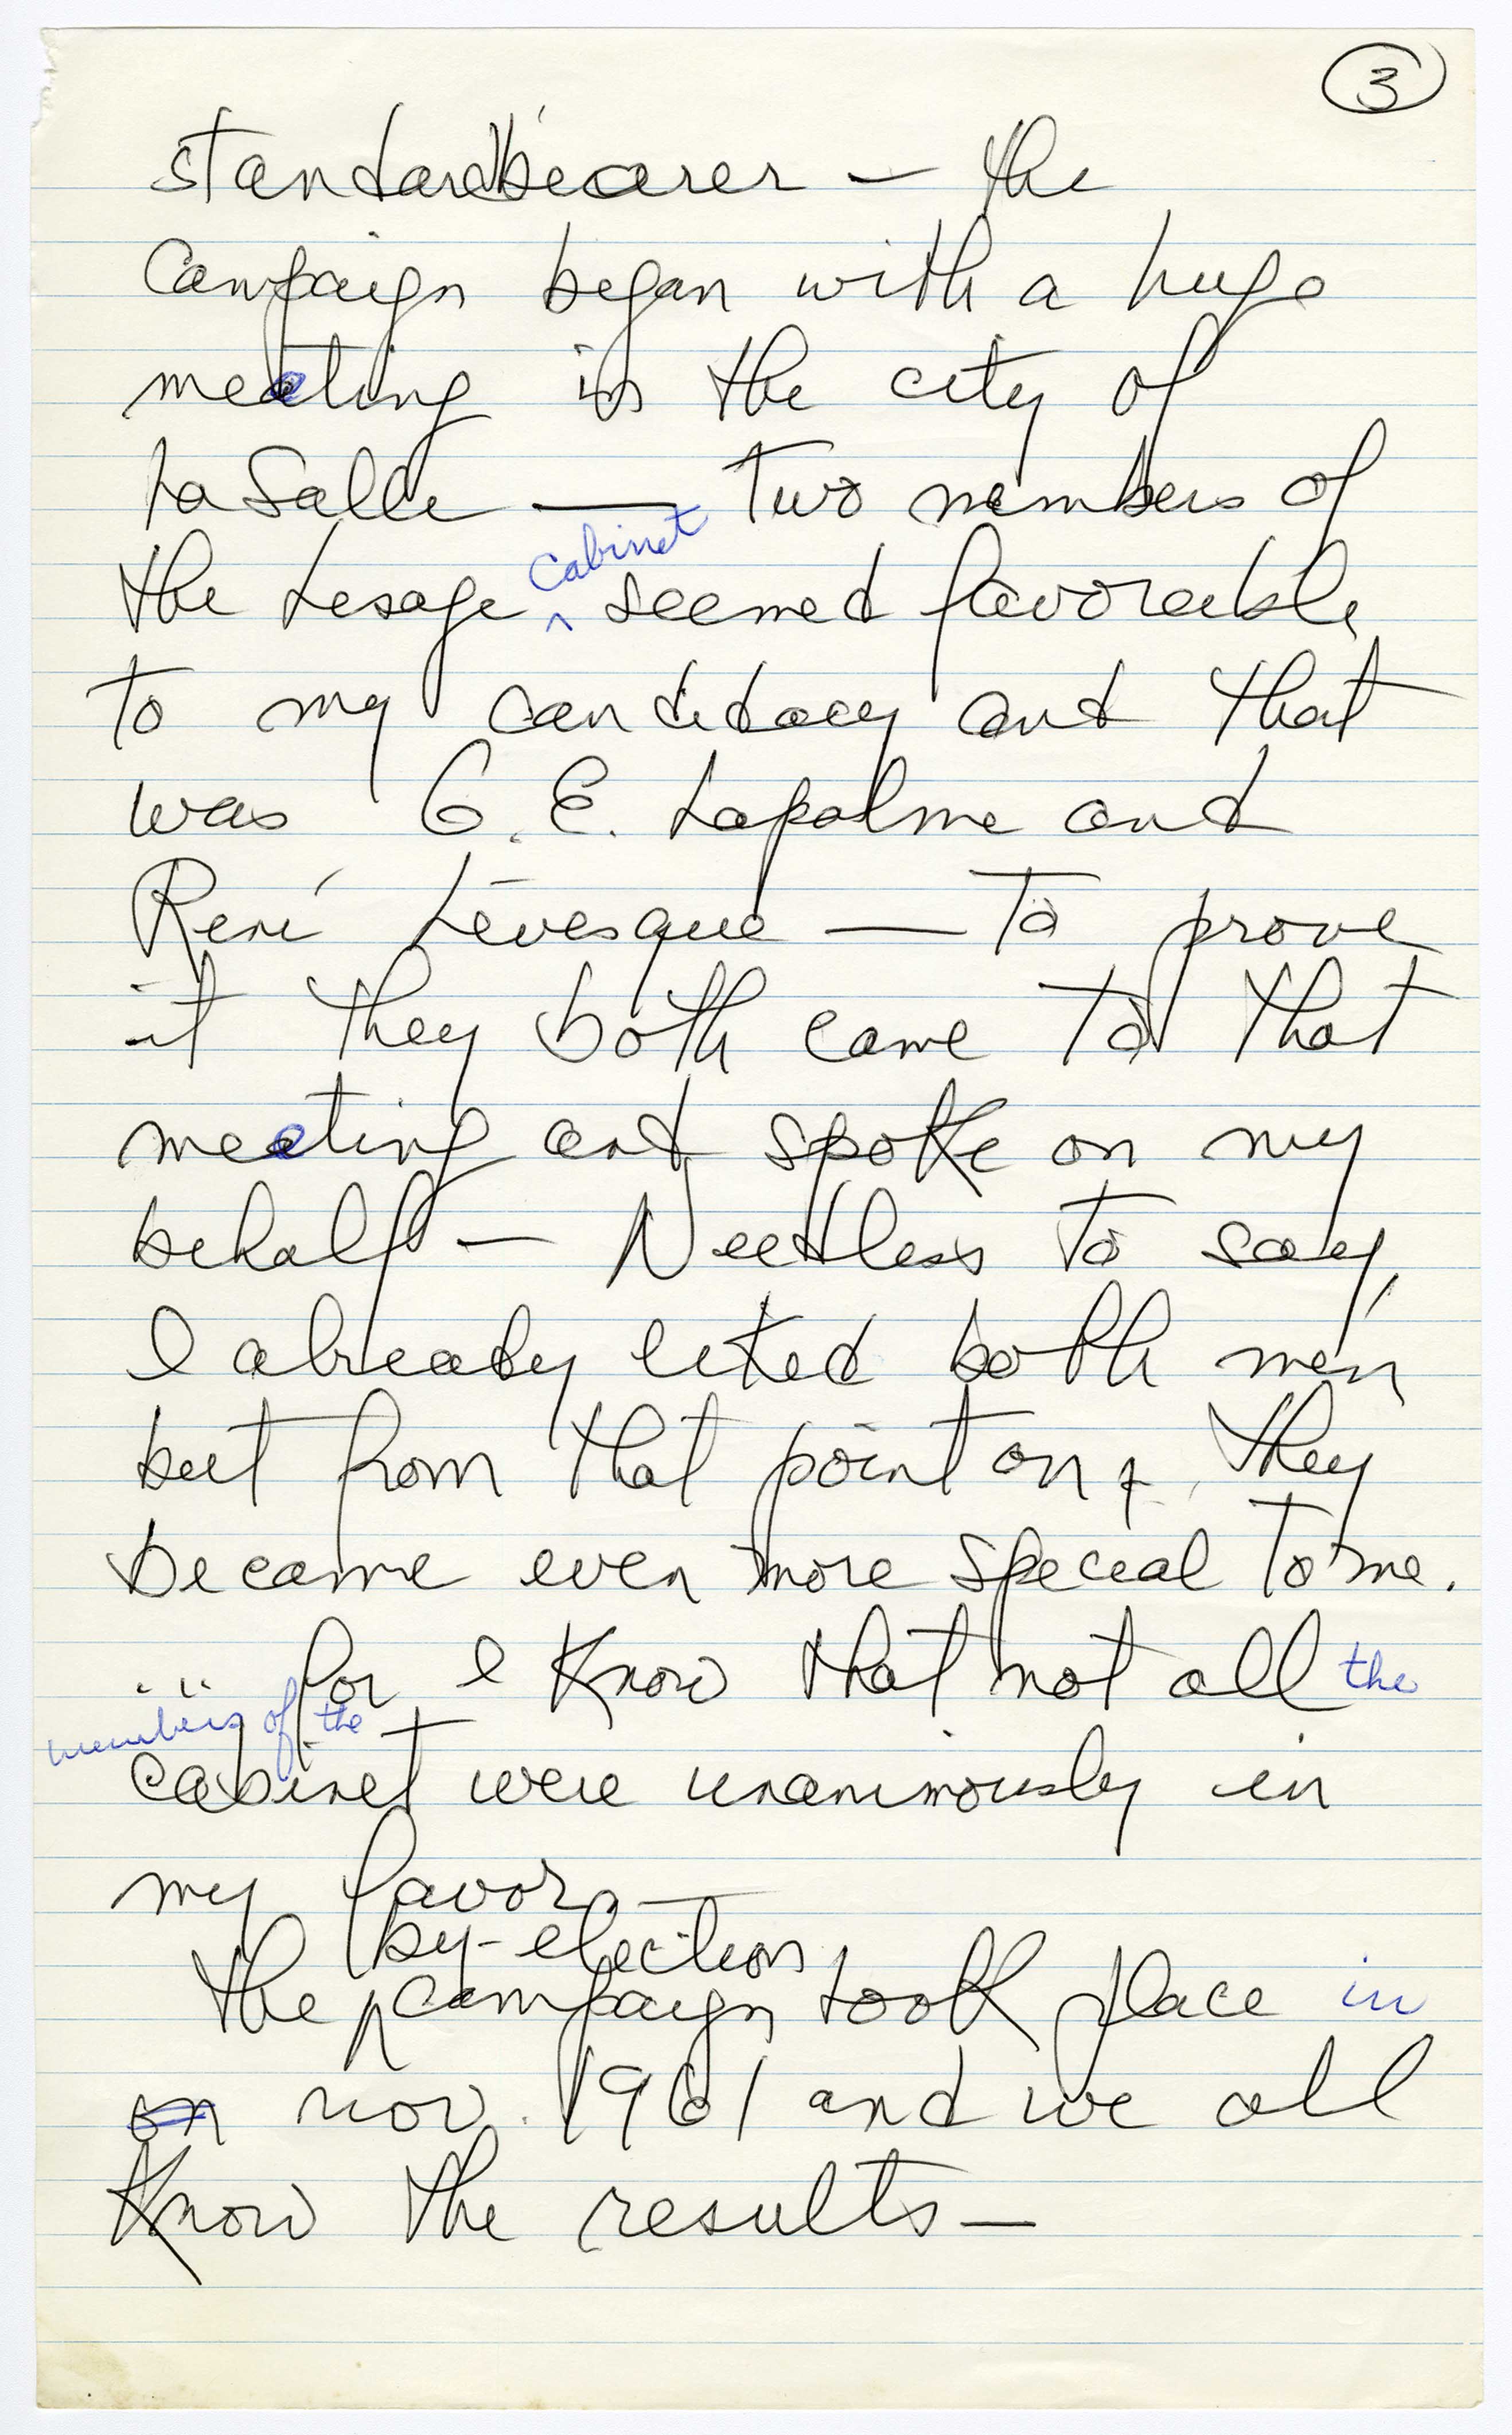 3
standardbearer — the
Campaign began with a huge
meeting in the city of
LaSalle — Two members of
the Lesage cabinet seemed favorable
to my candidacy and that
was G. E. Lapalme and
René Lévesque — To prove
it they both came to that
meeting and spoke on my
behalf — Needless to say,
I already liked both men
but from that point on, they
became even more special to me.
... for I know that not all the
members of the
cabinet were unanimously in
my favor —
by-election
the campaign took place in
on nov. 1961 and we all
know the results —